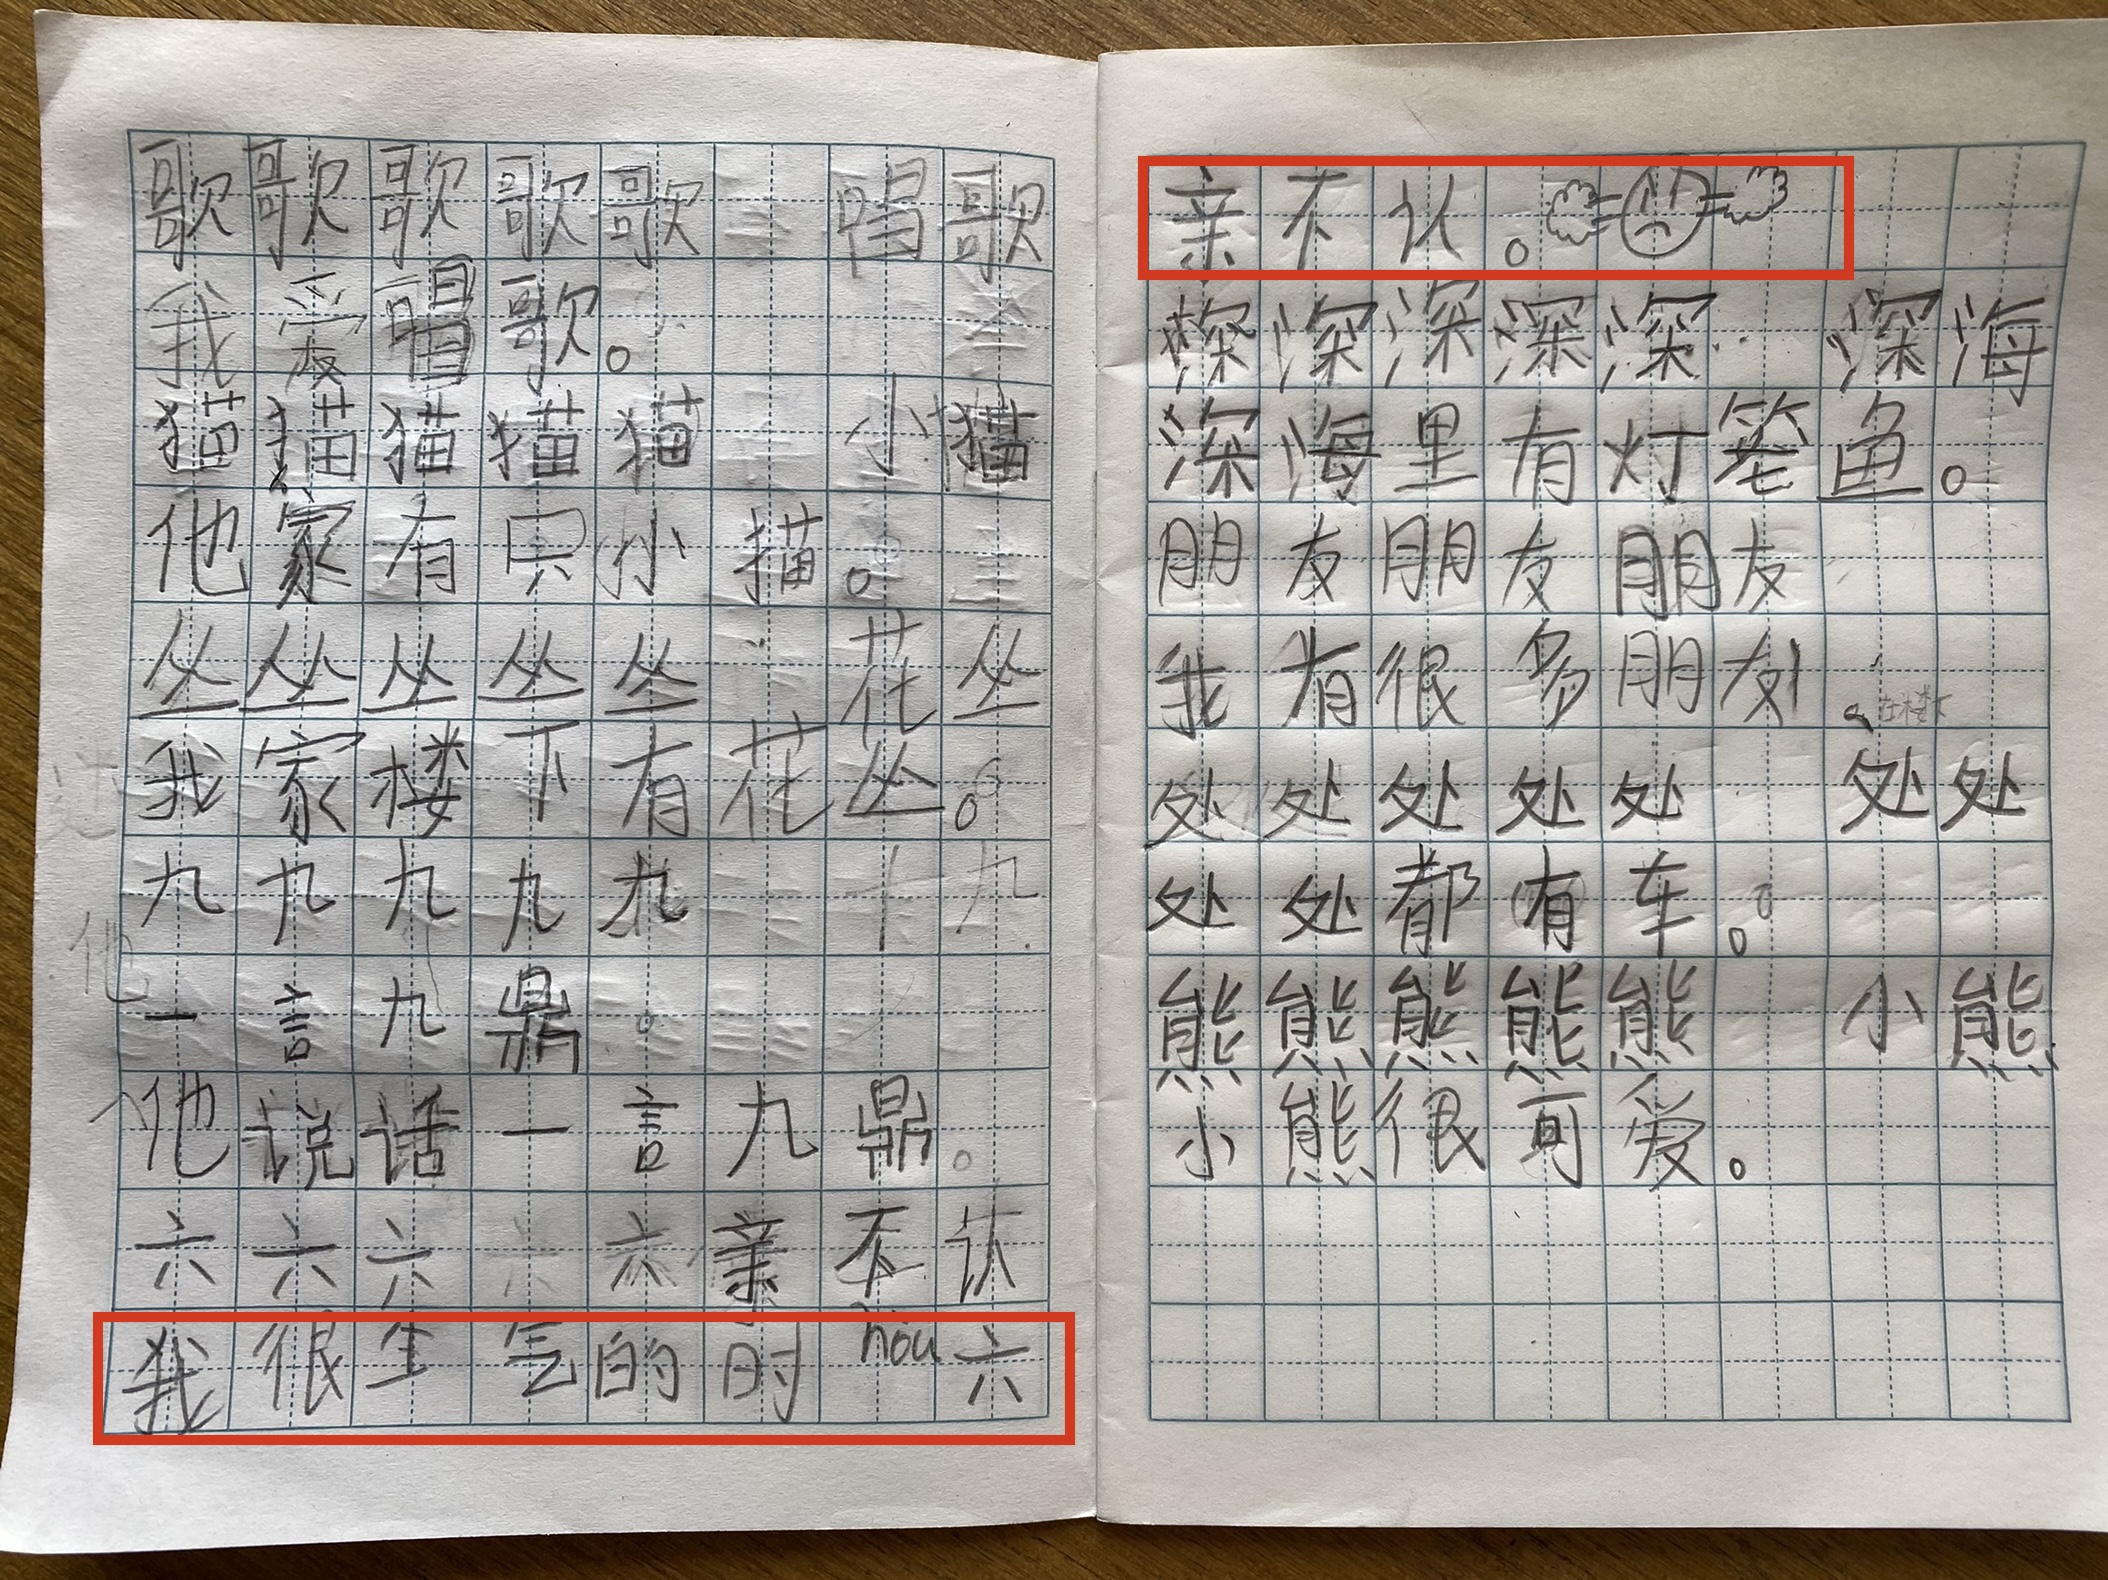 歌歌歌歌歌 唱歌
我爱唱歌。
猫猫猫猫猫 小猫
他家有只小描。
丛丛丛丛丛 花丛
我家楼下有花丛。
九九九九九 十九
一言九鼎。
他说话一言九鼎。
六六六六六亲不认
我很生气的时hou六
亲不认。
深深深深深 深海
深海里有灯笼鱼。
朋友朋友朋友
我有很多朋友。
处处处处处 处处
处处都有车。
熊熊熊熊熊 小熊
小熊很可爱。